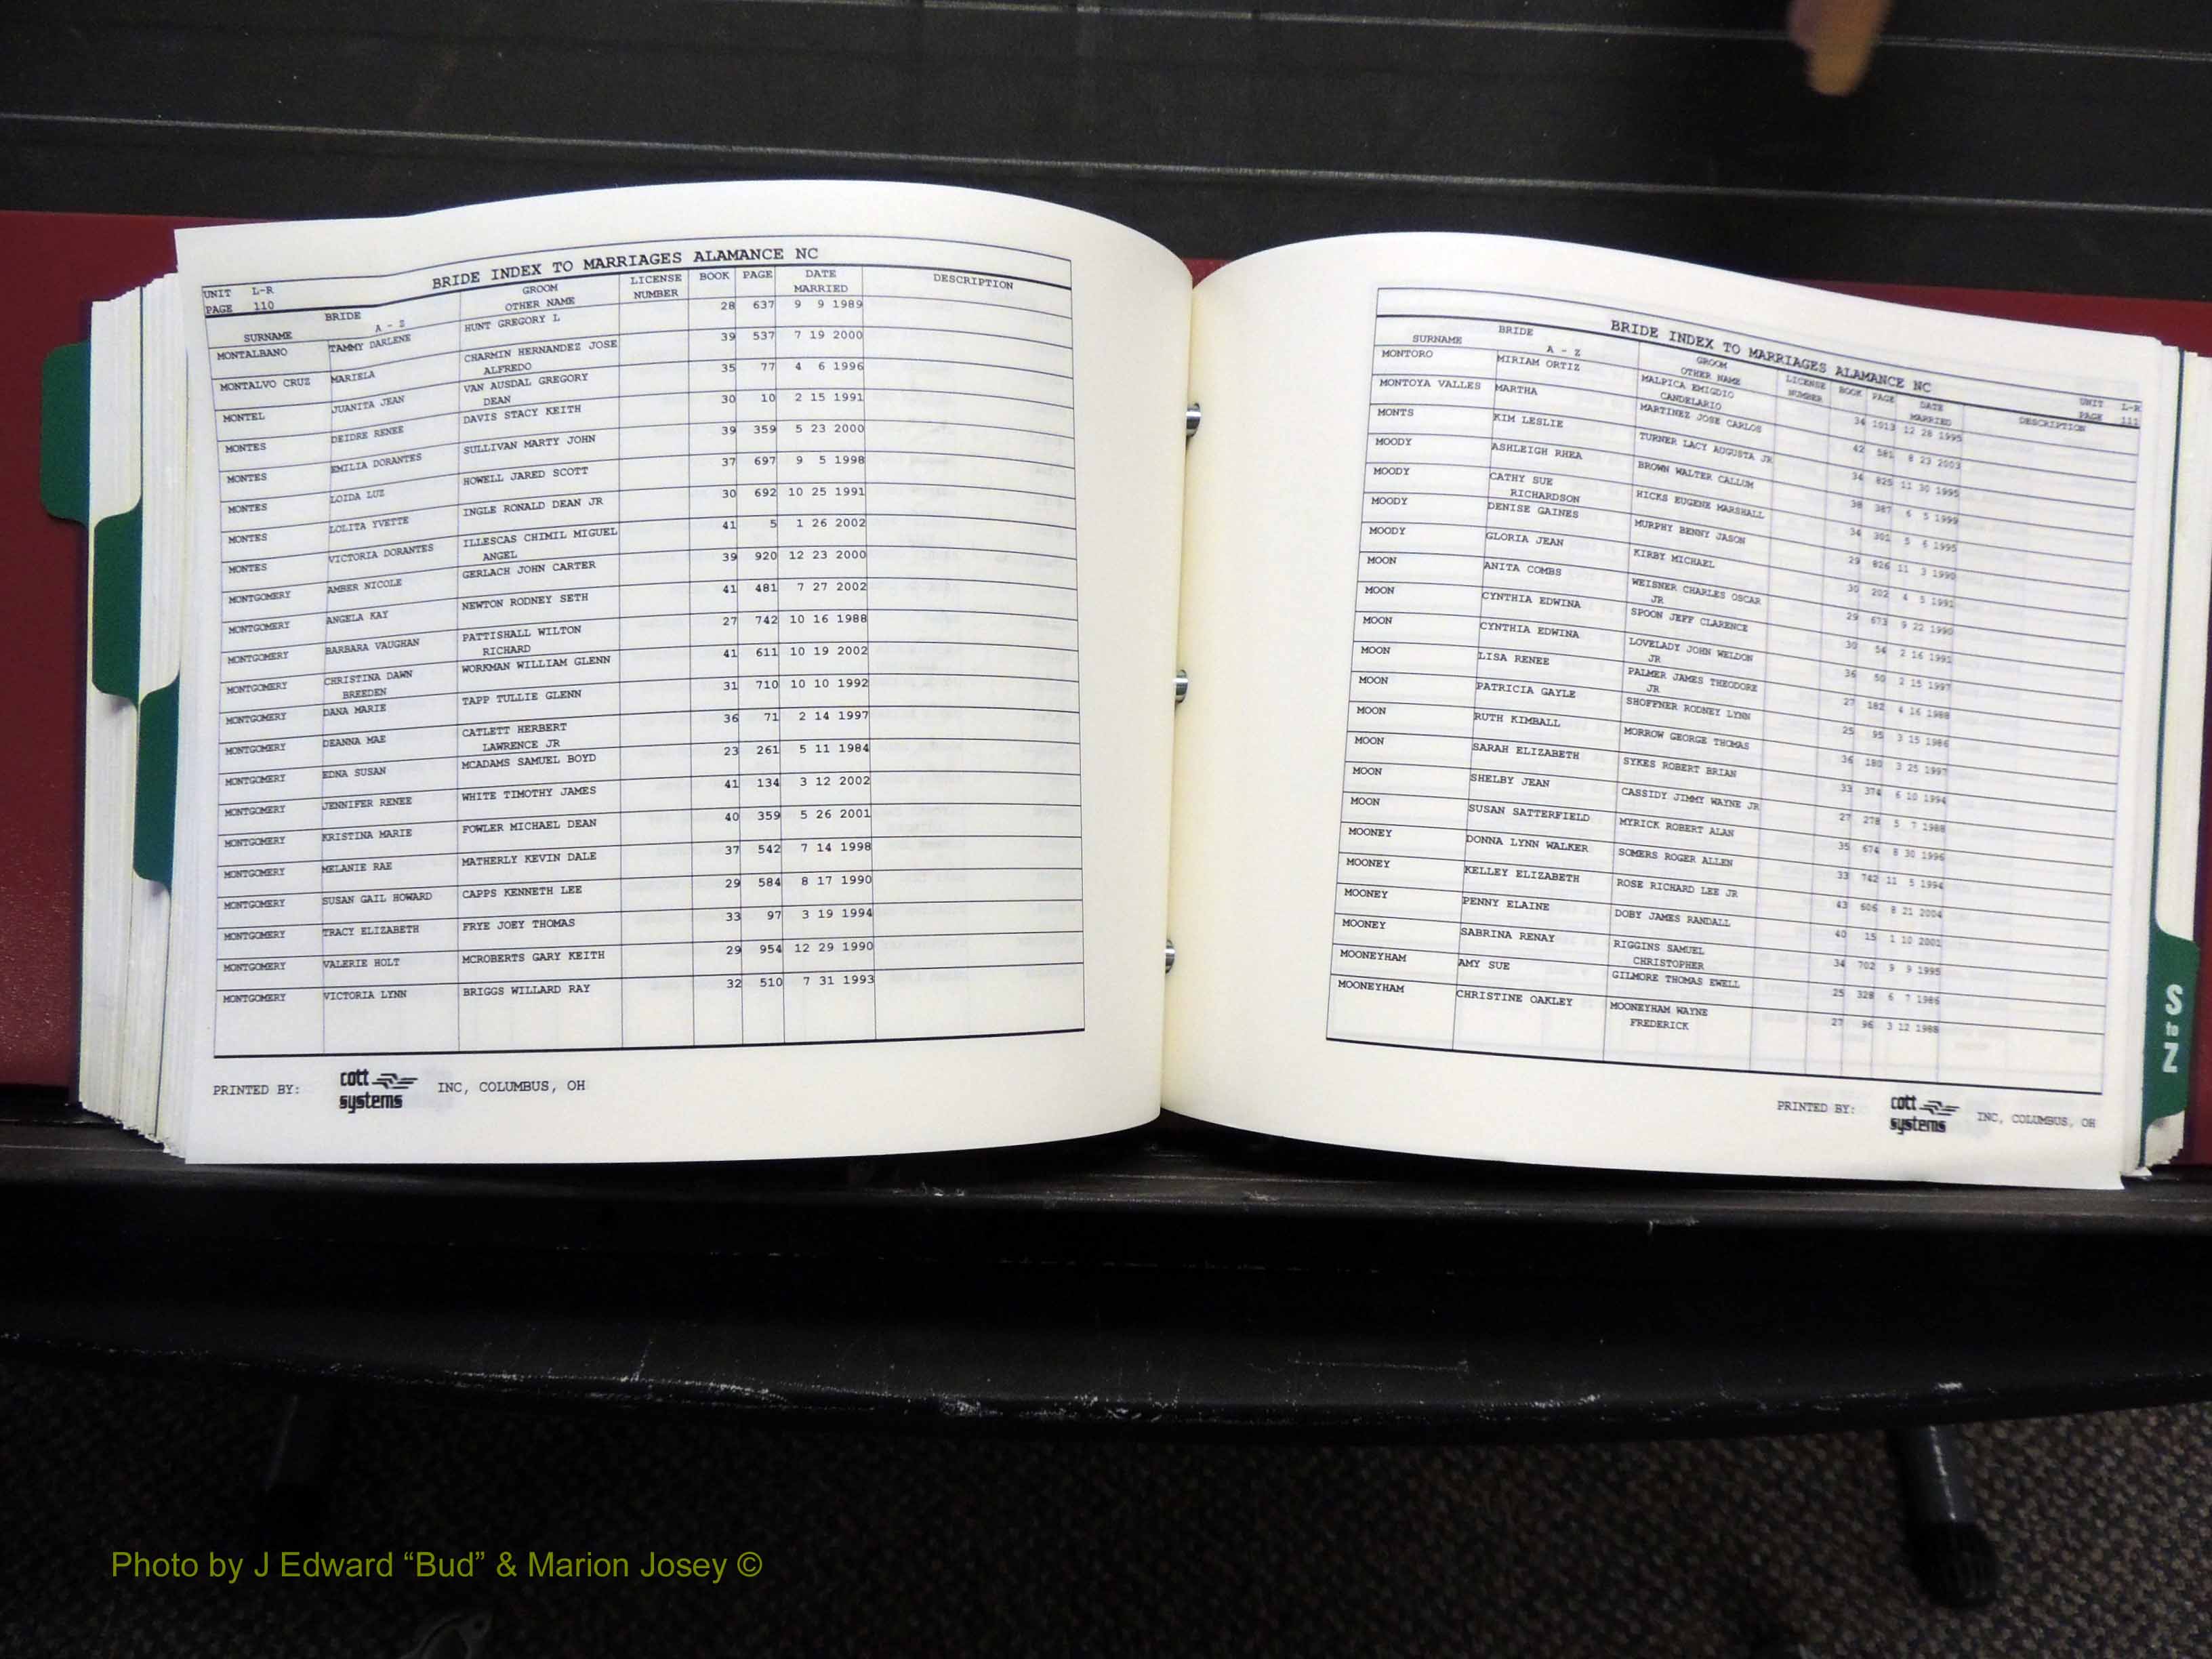 BRIDE INDEX TO MARRIAGES ALAMANCE NC
UNIT L-R
PAGE 110
BRIDE GROOM LICENSE BOOK PAGE DATE DESCRIPTION
SURNAME A - Z OTHER NAME NUMBER MARRIED
MONTALBANO TAMMY DARLENE HUNT GREGORY L 28 637 9 9 1989
MONTALVO CRUZ MARIELA CHARMIN HERNANDEZ JOSE 39 537 7 19 2000
ALFREDO
MONTEL JUANITA JEAN VAN AUSDAL GREGORY 35 77 4 6 1996
DEAN
MONTES DEIDRE RENEE DAVIS STACY KEITH 30 10 2 15 1991
MONTES EMILIA DORANTES SULLIVAN MARTY JOHN 39 359 5 23 2000
MONTES LOIDA LUZ HOWELL JARED SCOTT 37 697 9 5 1998
MONTES LOLITA YVETTE INGLE RONALD DEAN JR 30 692 10 25 1991
MONTES VICTORIA DORANTES ILLESCAS CHIMIL MIGUEL 41 5 1 26 2002
ANGEL
MONTGOMERY AMBER NICOLE GERLACH JOHN CARTER 39 920 12 23 2000
MONTGOMERY ANGELA KAY NEWTON RODNEY SETH 41 481 7 27 2002
MONTGOMERY BARBARA VAUGHAN PATTISHALL WILTON 27 742 10 16 1988
RICHARD
MONTGOMERY CHRISTINA DAWN WORKMAN WILLIAM GLENN 41 611 10 19 2002
BREEDEN
MONTGOMERY DANA MARIE TAPP TULLIE GLENN 31 710 10 10 1992
MONTGOMERY DEANNA MAE CATLETT HERBERT 36 71 2 14 1997
LAWRENCE JR
MONTGOMERY EDNA SUSAN MCADAMS SAMUEL BOYD 23 261 5 11 1984
MONTGOMERY JENNIFER RENEE WHITE TIMOTHY JAMES 41 134 3 12 2002
MONTGOMERY KRISTINA MARIE FOWLER MICHAEL DEAN 40 359 5 26 2001
MONTGOMERY MELANIE RAE MATHERLY KEVIN DALE 37 542 7 14 1998
MONTGOMERY SUSAN GAIL HOWARD CAPPS KENNETH LEE 29 584 8 17 1990
MONTGOMERY TRACY ELIZABETH FRYE JOEY THOMAS 33 97 3 19 1994
MONTGOMERY VALERIE HOLT MCROBERTS GARY KEITH 29 954 12 29 1990
MONTGOMERY VICTORIA LYNN BRIGGS WILLARD RAY 32 510 7 31 1993
PRINTED BY: cott systems INC, COLUMBUS, OH
BRIDE INDEX TO MARRIAGES ALAMANCE NC
UNIT L-R
PAGE 111
BRIDE GROOM LICENSE BOOK PAGE DATE DESCRIPTION
SURNAME A - Z OTHER NAME NUMBER MARRIED
MONTORO MIRIAM ORTIZ MALPICA EMIGDIO 34 1013 12 28 1995
CANDELARIO
MONTOYA VALLES MARTHA MARTINEZ JOSE CARLOS 42 581 8 23 2003
MONTS KIM LESLIE TURNER LACY AUGUSTA JR 34 825 11 30 1995
MOODY ASHLEIGH RHEA BROWN WALTER CALLUM 38 387 6 5 1999
MOODY CATHY SUE HICKS EUGENE MARSHALL 34 301 5 6 1995
RICHARDSON
MOODY DENISE GAINES MURPHY BENNY JASON 29 826 11 3 1990
MOODY GLORIA JEAN KIRBY MICHAEL 30 202 4 5 1991
MOON ANITA COMBS WEISNER CHARLES OSCAR 29 673 9 22 1990
JR
MOON CYNTHIA EDWINA SPOON JEFF CLARENCE 30 54 2 16 1991
MOON CYNTHIA EDWINA LOVELADY JOHN WELDON 36 50 2 15 1997
JR
MOON LISA RENEE PALMER JAMES THEODORE 27 182 4 16 1988
JR
MOON PATRICIA GAYLE SHOFFNER RODNEY LYNN 25 95 3 15 1986
MOON RUTH KIMBALL MORROW GEORGE THOMAS 36 180 3 25 1997
MOON SARAH ELIZABETH SYKES ROBERT BRIAN 33 374 6 10 1994
MOON SHELBY JEAN CASSIDY JIMMY WAYNE JR 27 278 5 7 1988
MOON SUSAN SATTERFIELD MYRICK ROBERT ALAN 35 674 8 30 1996
MOONEY DONNA LYNN WALKER SOMERS ROGER ALLEN 33 742 11 5 1994
MOONEY KELLEY ELIZABETH ROSE RICHARD LEE JR 43 606 8 21 2004
MOONEY PENNY ELAINE DOBY JAMES RANDALL 40 15 1 10 2001
MOONEY SABRINA RENAY RIGGINS SAMUEL 34 702 9 9 1995
CHRISTOPHER
MOONEYHAM AMY SUE GILMORE THOMAS EWELL 25 328 6 7 1986
MOONEYHAM CHRISTINE OAKLEY MOONEYHAM WAYNE 27 96 3 12 1988
FREDERICK
PRINTED BY: cott systems INC, COLUMBUS, OH
S to Z
Photo by J Edward “Bud” & Marion Josey ©